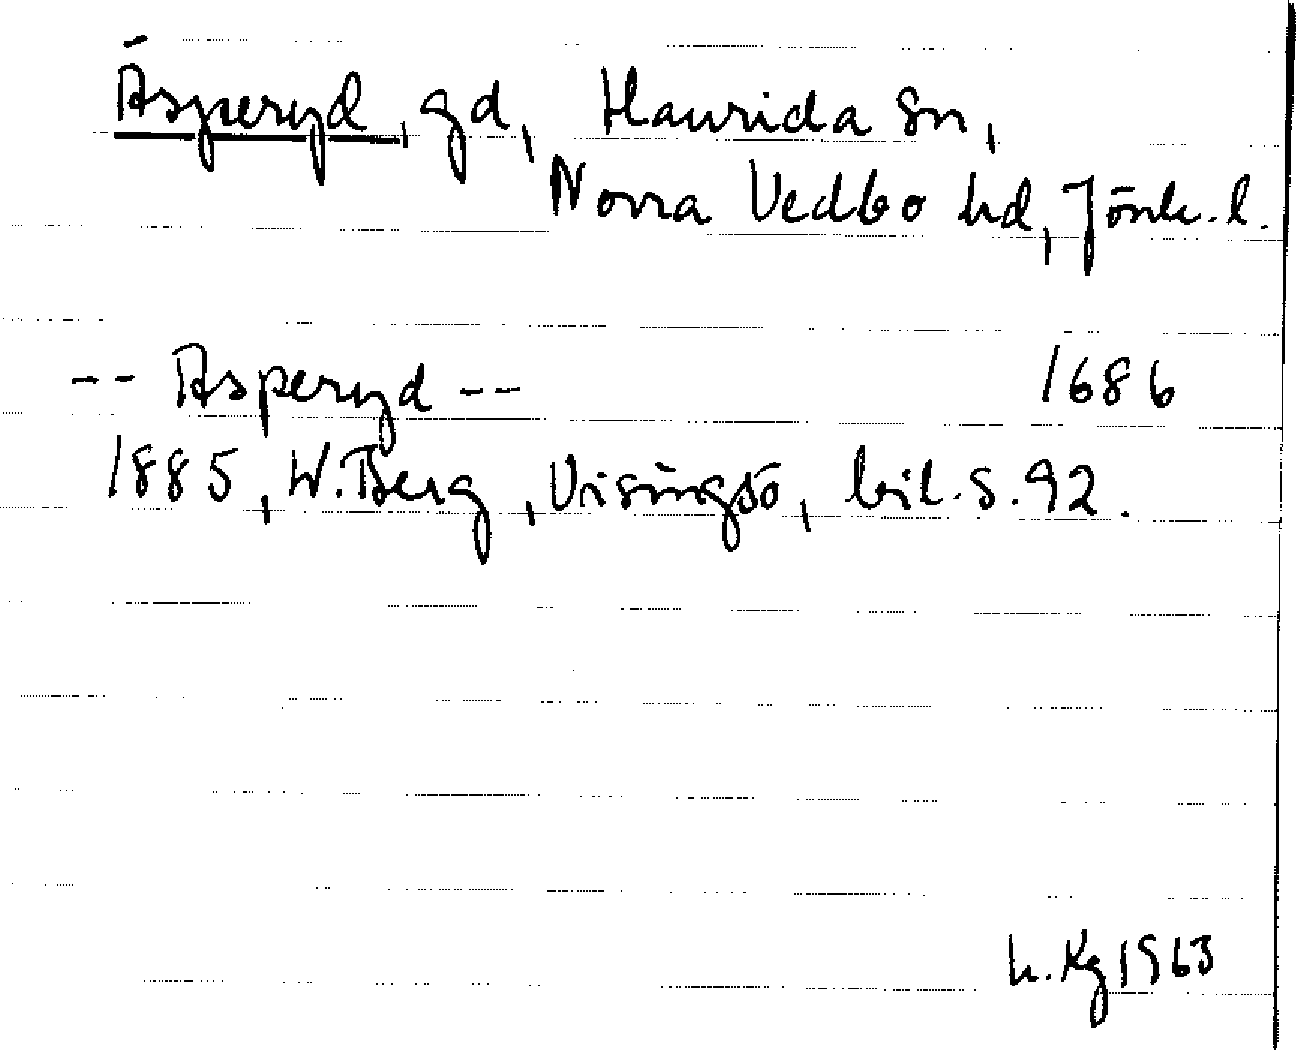 Äsperyd, gd, Haurida sn,
Norra Vedbo hd, Jönk. l.
-- Asperyd -- 1686
1885, W. Berg, Visingsö, bil. s. 92.
h. Kg 1963